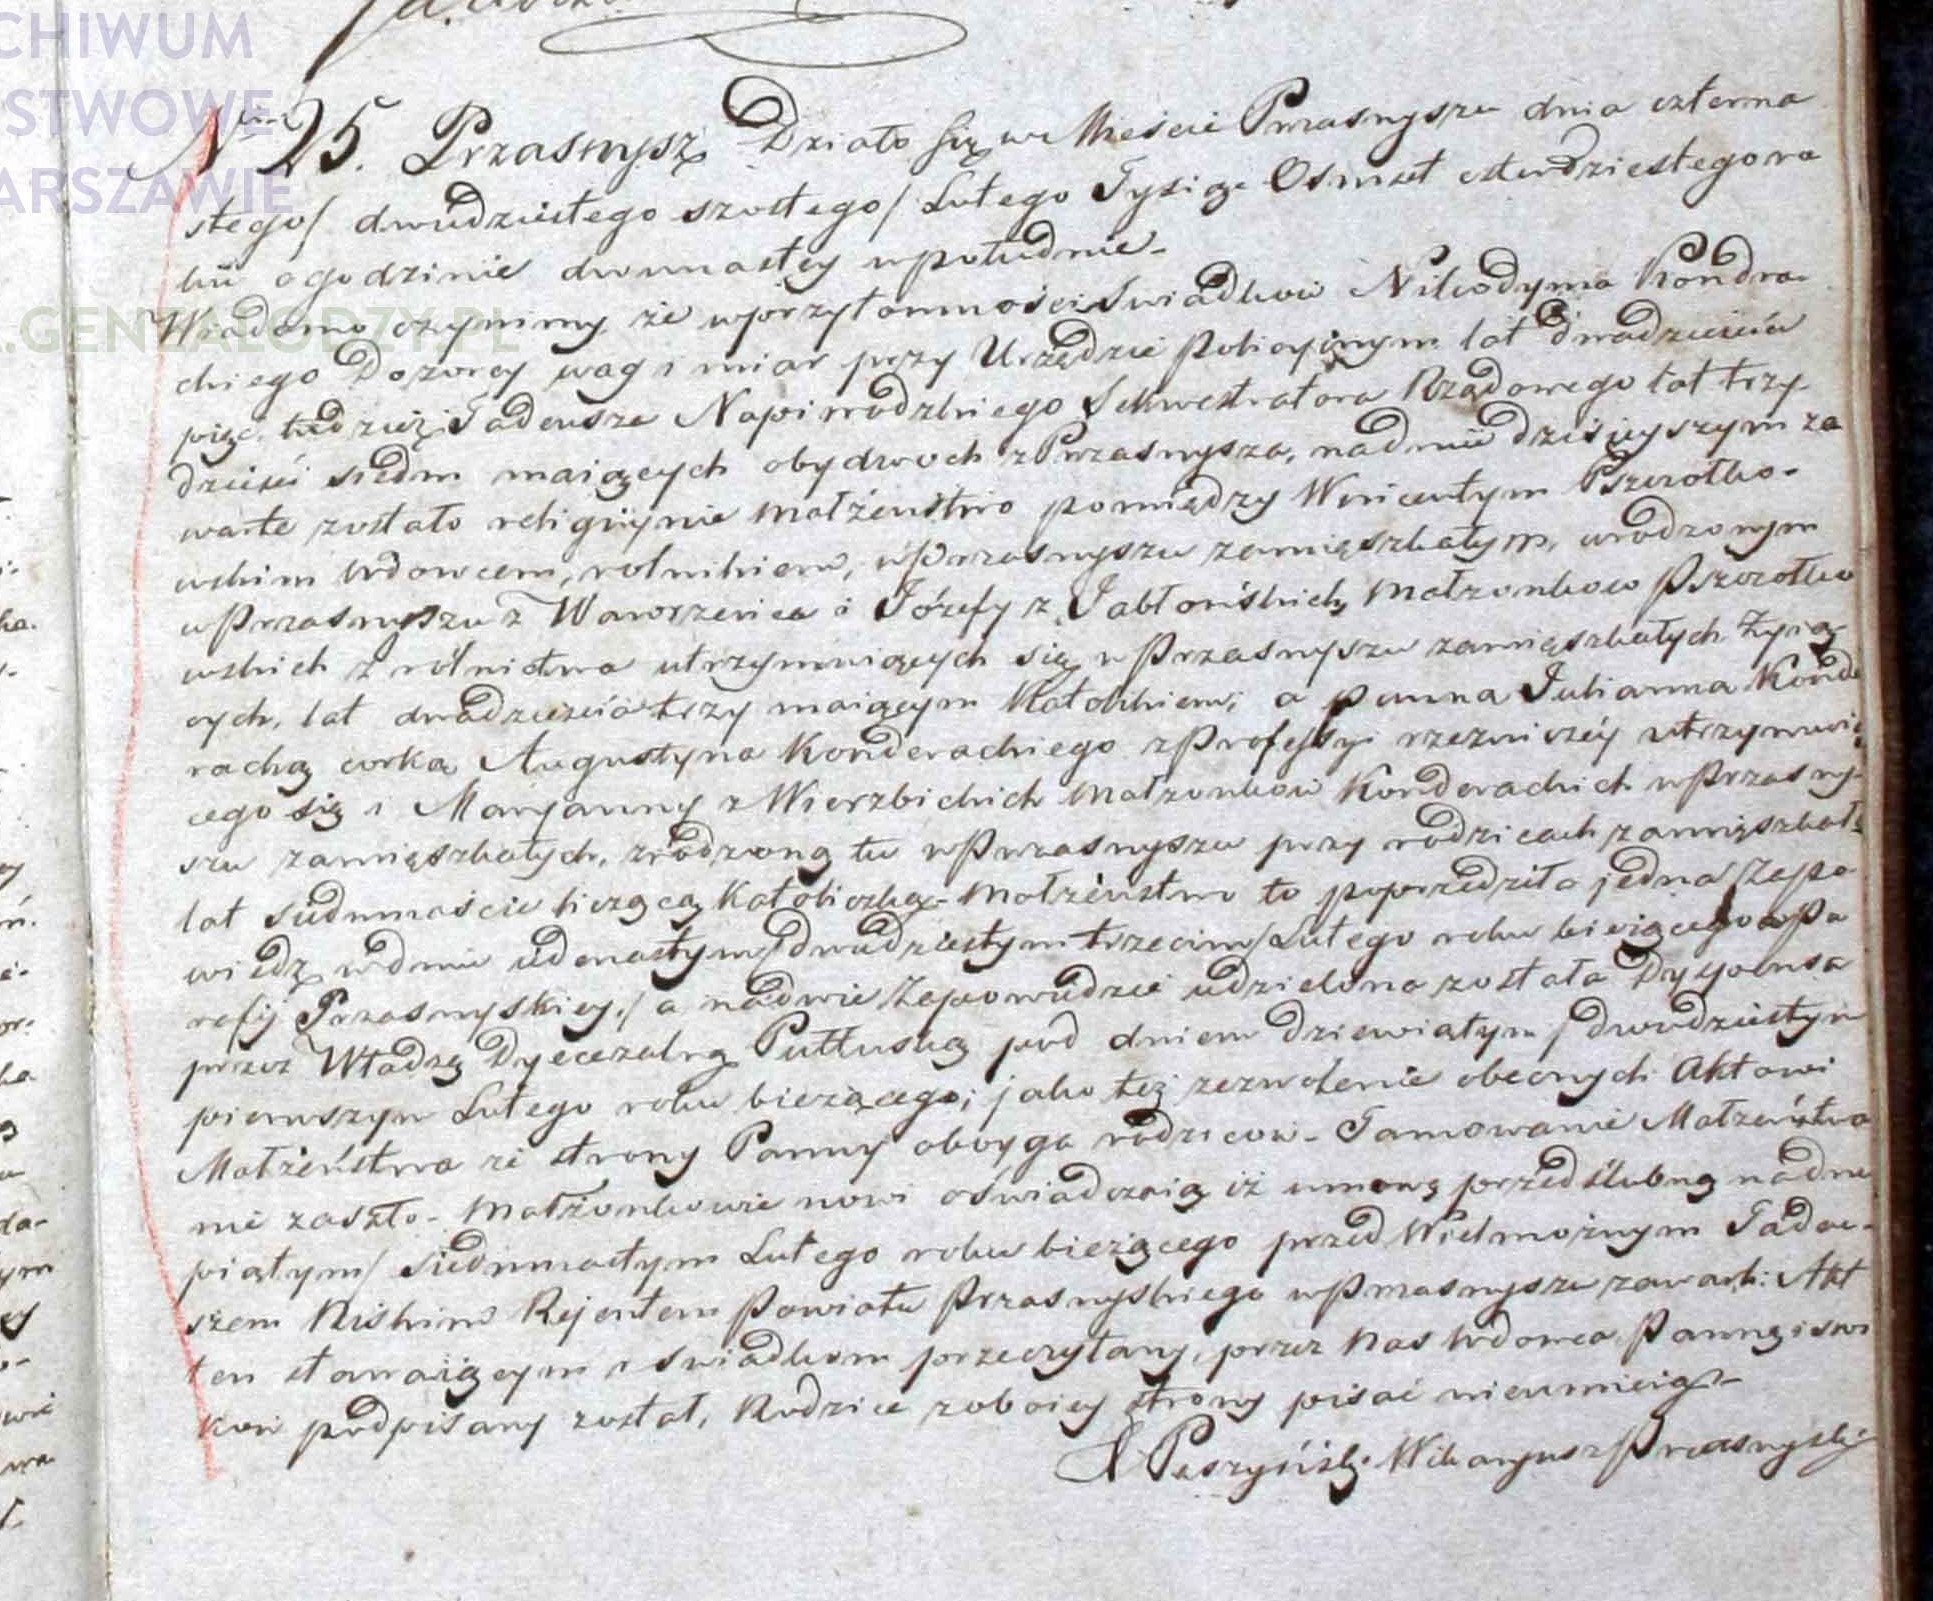 CHIWUM
STWOWE
ARSZAWIE
.GENEALODZY.PL
Nro 25. Przasnysz Działo się w Mieście Przasnyszu dnia czterna
stego/ dwudziestego szóstego/ Lutego Tysiąc Osmset czterdziestego ro
ku o godzinie dwunastey w południe-
Wiadomo czynimy że w przytomności Swiadków Nikodyma Kondra-
ckiego Dozorcy wag i miar przy Urzędzie Policyjnym lat dwadzieścia
pięć, tudzież Tadeusza Napierodzkiego Sekwestratora Rządowego lat trzy-
dzieści siedm maiących obydwoch z Przasnysza, na dniu dzisieyszym za
warte zostało religijnie małżeństwo pomiędzy Wincentym Pszczołko-
wskim wdowcem, rolnikiem, w Przasnyszu zamięszkałym, urodzonym
w Przasnyszu z Wawrzeńca i Józefy z Jabłońskich Małżonkow Pszczołko
wskich z rolnictwa utrzymuiących się w Przasnyszu zamięszkałych żyią-
cych, lat dwadzieścia trzy maiącym Katolikiem; a Panną Julianną Konde
racką corką Augustyna Konderackiego z Professyi rzezniczéy utrzymuią
cego się i Maryanny z Wierzbickich Małżonkow Konderackich w Przasny-
szu zamięszkałych, zrodzoną tu w Przasnyszu przy rodzicach zamięszkałą
lat siedmnaście liczącą Katoliczką- Małżeństwo to poprzedziła jedna Zapo-
wiedz w dniu jedenastym/ dwudziestym trzecim/ Lutego roku bieżącego w Pa
rafij Przasnyskiey,/ a na dwie Zapowiedzie udzielona została Dyspensa
przez Władzę Dyecezalną Pułtuską pod dniem dziewiątym/ dwudziestym
pierwszym Lutego roku bieżącego; jako też zezwolenie obecnych Aktowi
Małżeństwa ze strony Panny oboyga rodzicow- Tamowanie Małżeństwa
nie zaszło- Małżonkowie nowi oświadczaią iż umowę przedślubną na dniu
piątym/ siedmnastym Lutego roku bieżącego przed Wielmożnym Tadeu-
szem Rejentem Powiatu Przasnyskiego w Przasnyszu zawarli. Akt
ten stawaiącym i świadkom przeczytany, przez Nas Wdowca, Pannę i świ
kow podpisany został, Rodzice z oboiey strony pisać nieumieią-
Wikaryusz Przasnyski